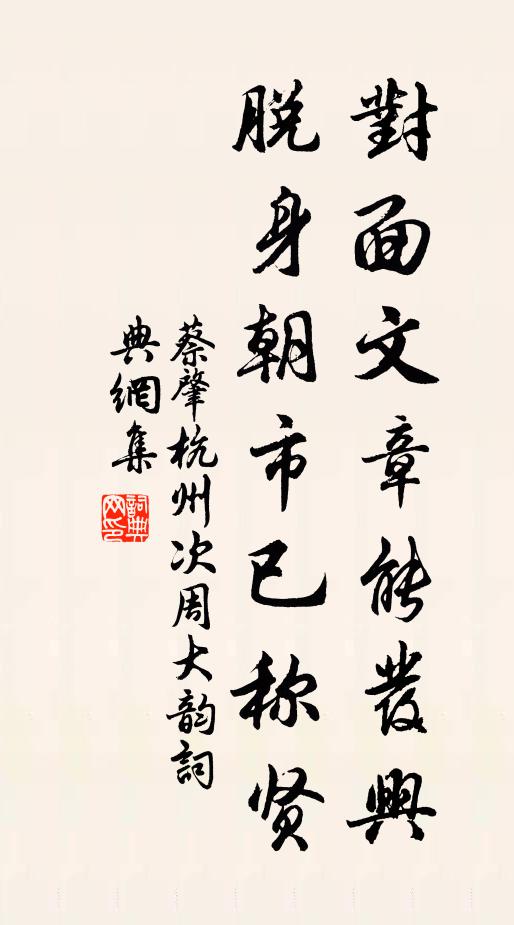 對面文章能發興
脱身朝市已称贤
蔡肇杭州次周大韵詞
典網集
詞典网印